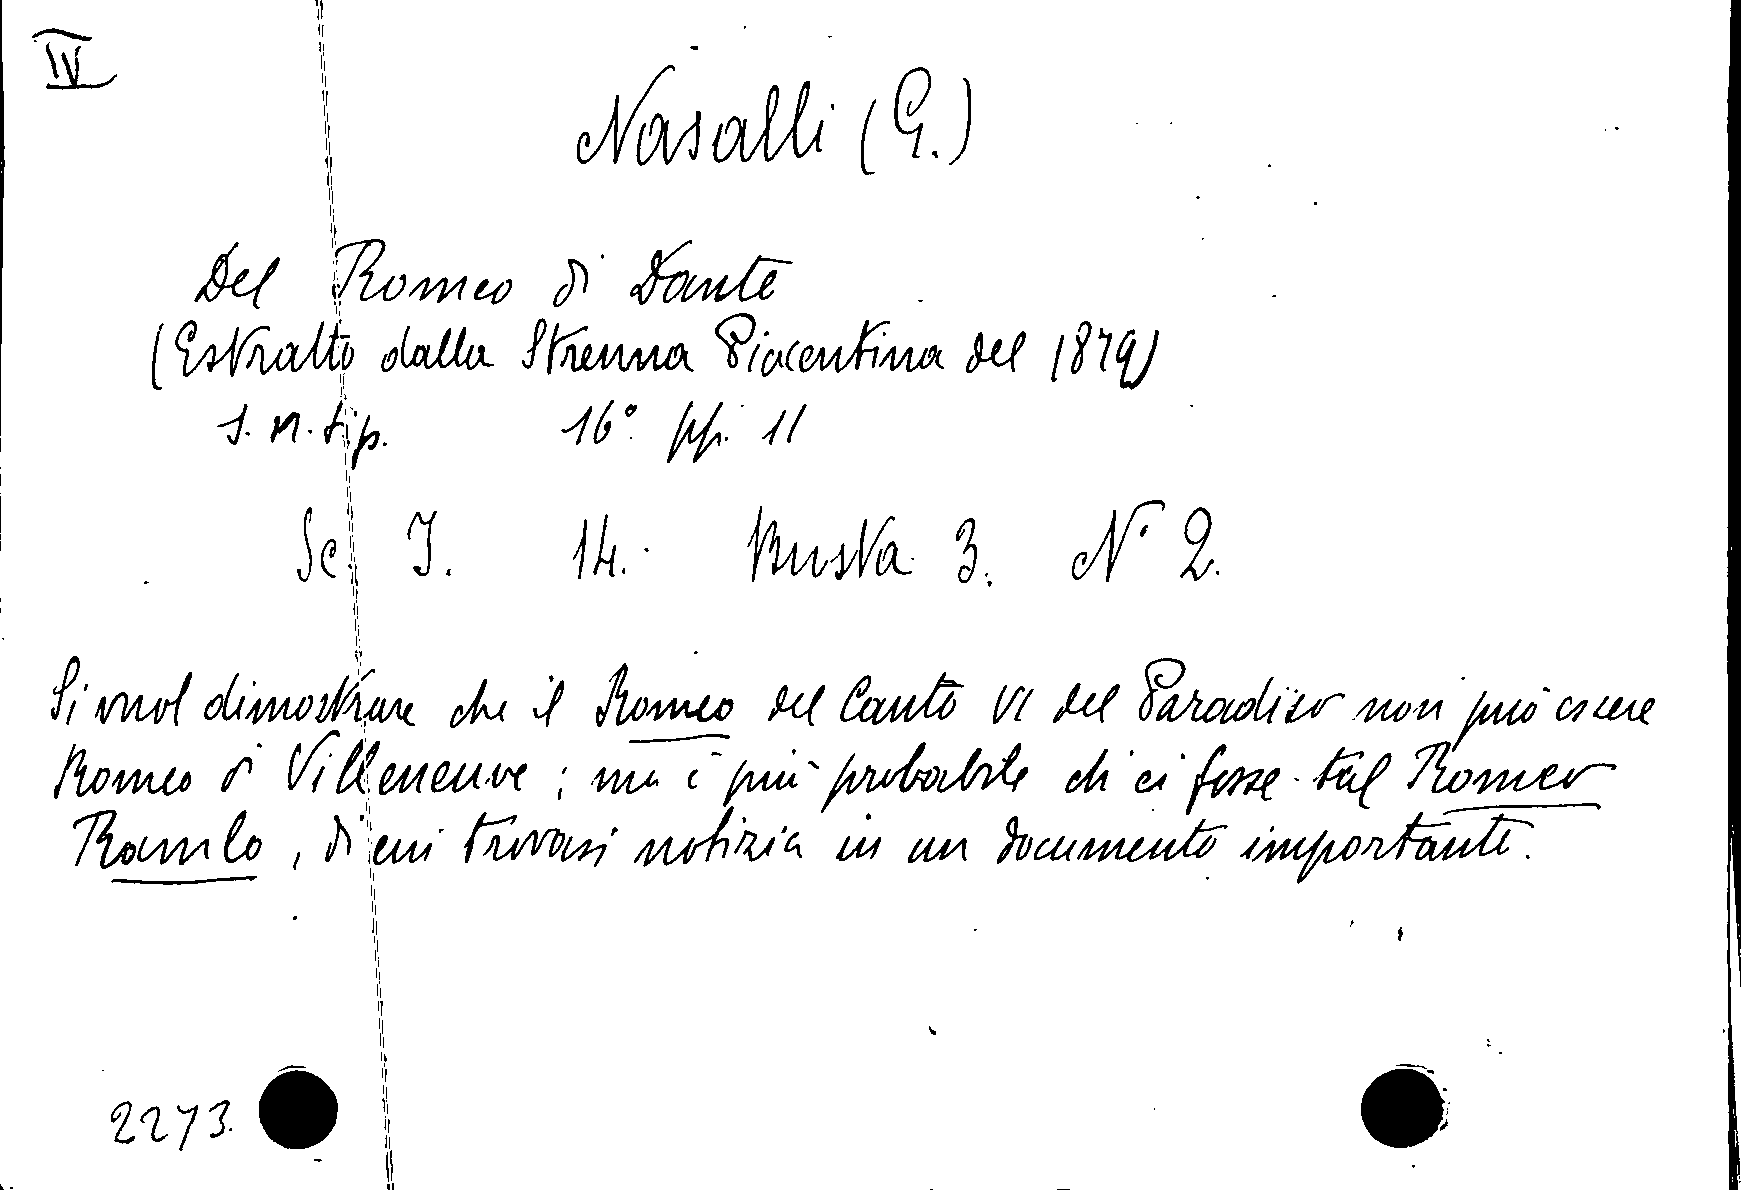 IV
Nasalli (G.)
Del Romeo di Dante
(Estratto dalla Strenna Piacentina del 1879)
s. n. tip. 16° pp. 11
Sc. I. 14. Busta 3. N° 2.
Si vuol dimostrare che il Romeo del Canto VI del Paradiso non può essere
Romeo di Villeneuve; ma è più probabile ch ei fosse tal Romeo
, di cui trovasi notizia in un documento importante.
2273.